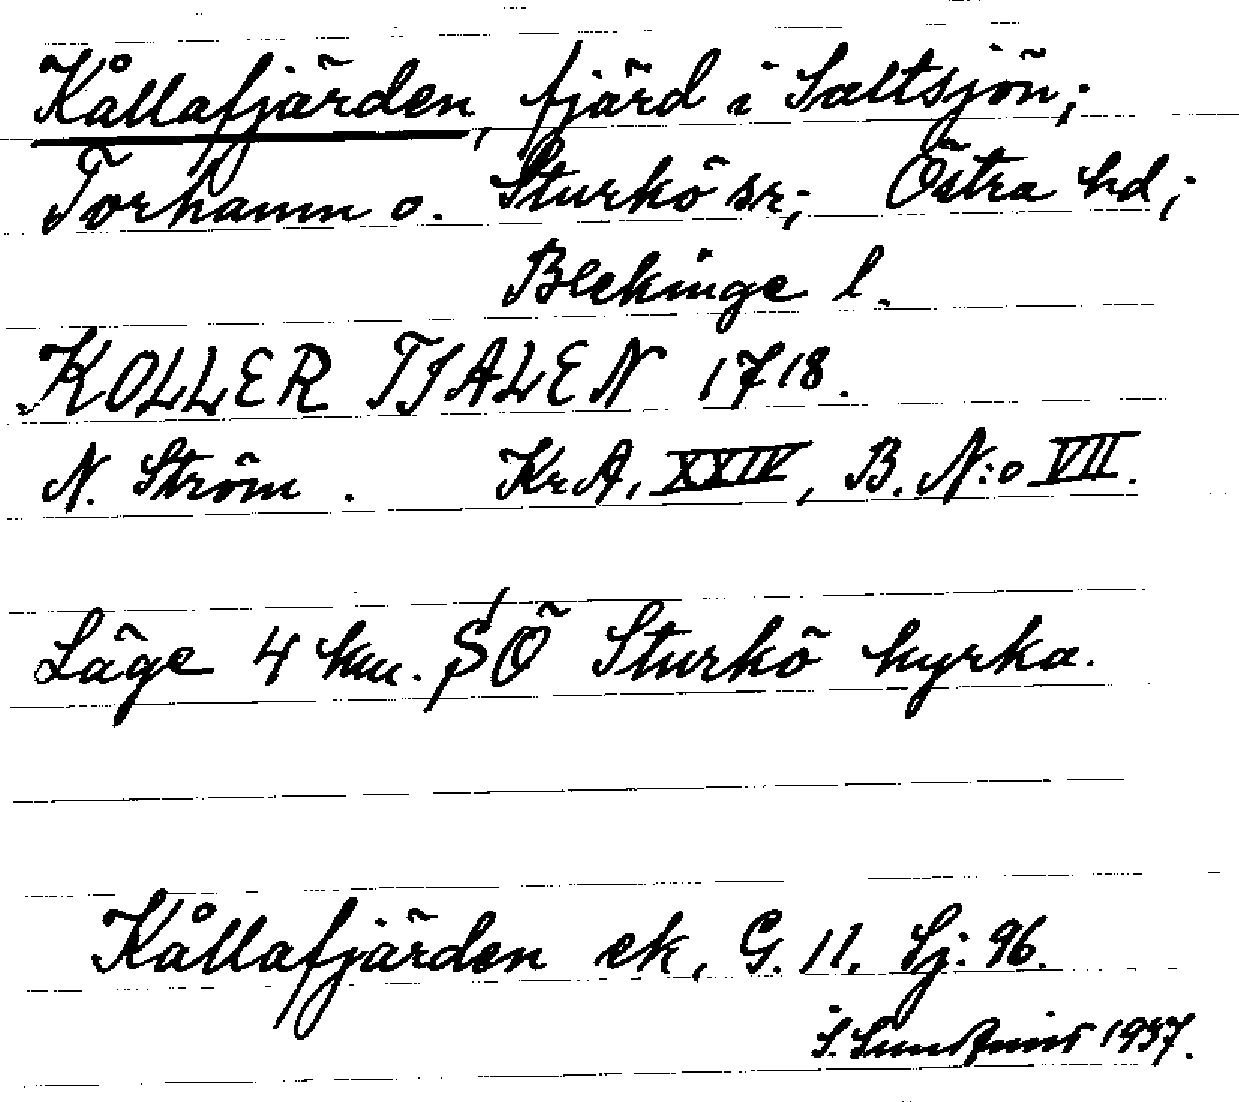 Kållafjärden, fjärd i Saltsjön;
Torhamn o. Sturkö sr; Östra hd;
Blekinge l.
KOLLER TJALEN 1718.
N. Ström. KrA, XXIV, B. N:o VII.
Läge 4 km. SÖ Sturkö kyrka.
Kållafjärden ek, G. 11. Sj: 96.
1937.